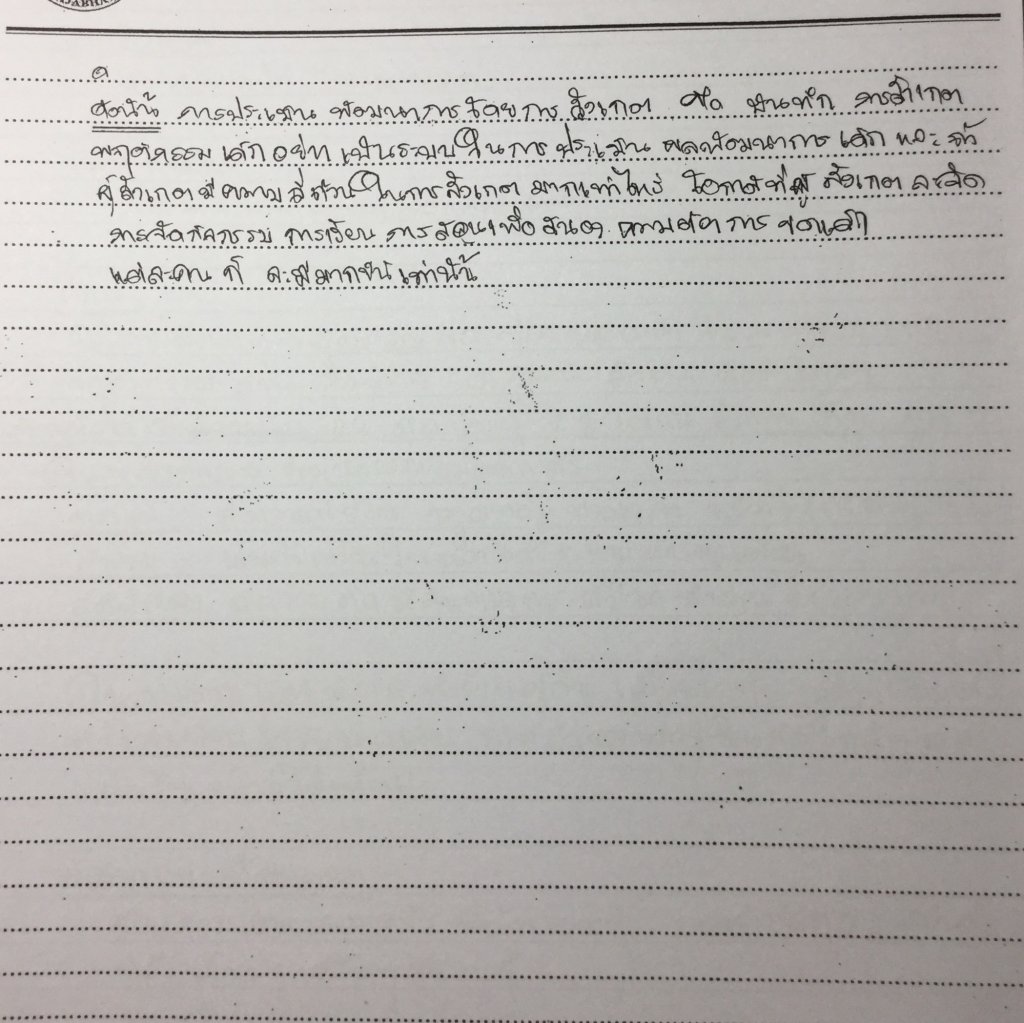 ดังนั้น การประเมินพัฒนาการโดยการสังเกต คือ บันทึก การสังเกต
พฤติกรรมเด็กอย่างเป็นระบบในการประเมินผลพัฒนาการเด็ก และ ถ้า
ผู้สังเกตมีความถี่ถ้วนในการสังเกตมากเท่าไหร่ โอกาสที่ผู้สังเกตจะจัด
การจัดกิจกรรม การเรียน การสอนเพื่อสนอง ความต้องการ ของเด็ก
แต่ละคน ก็ จะมีมากขึ้นเท่านั้น